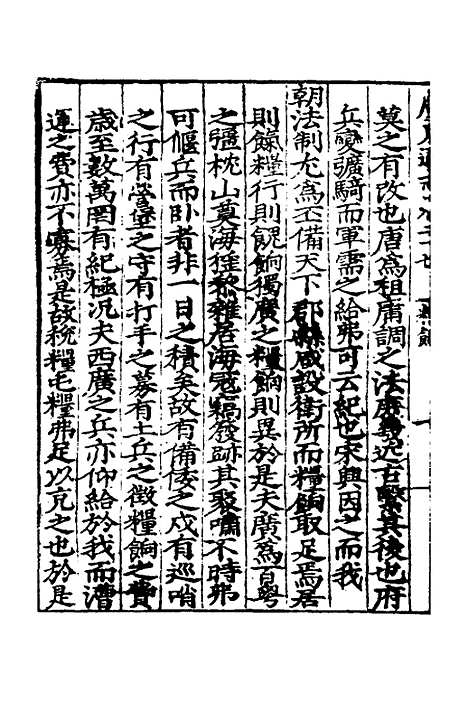 莫之有改也唐為租庸調之法庶幾近古繄其後也府
兵變彍騎而軍需之給弗可云紀也宋興因之而我
朝法制尤為丕備天下郡縣咸設衛所而糧餉取足焉居
則餼糧行則餽餉獨廣之糧餉則異於是夫廣為百粵
之彊枕山奠海猺黎雜居海寇竊發跡其聚嘯不時弗
可偃兵而卧者非一日之積矣故有備倭之戍有巡哨
之行有營堡之守有打手之募有土兵之徵糧餉之費
歳至數萬罔有紀極况夫西廣之兵亦仰給於我而漕
運之費亦不寡焉是故稅糧屯糧弗足以充之也於是